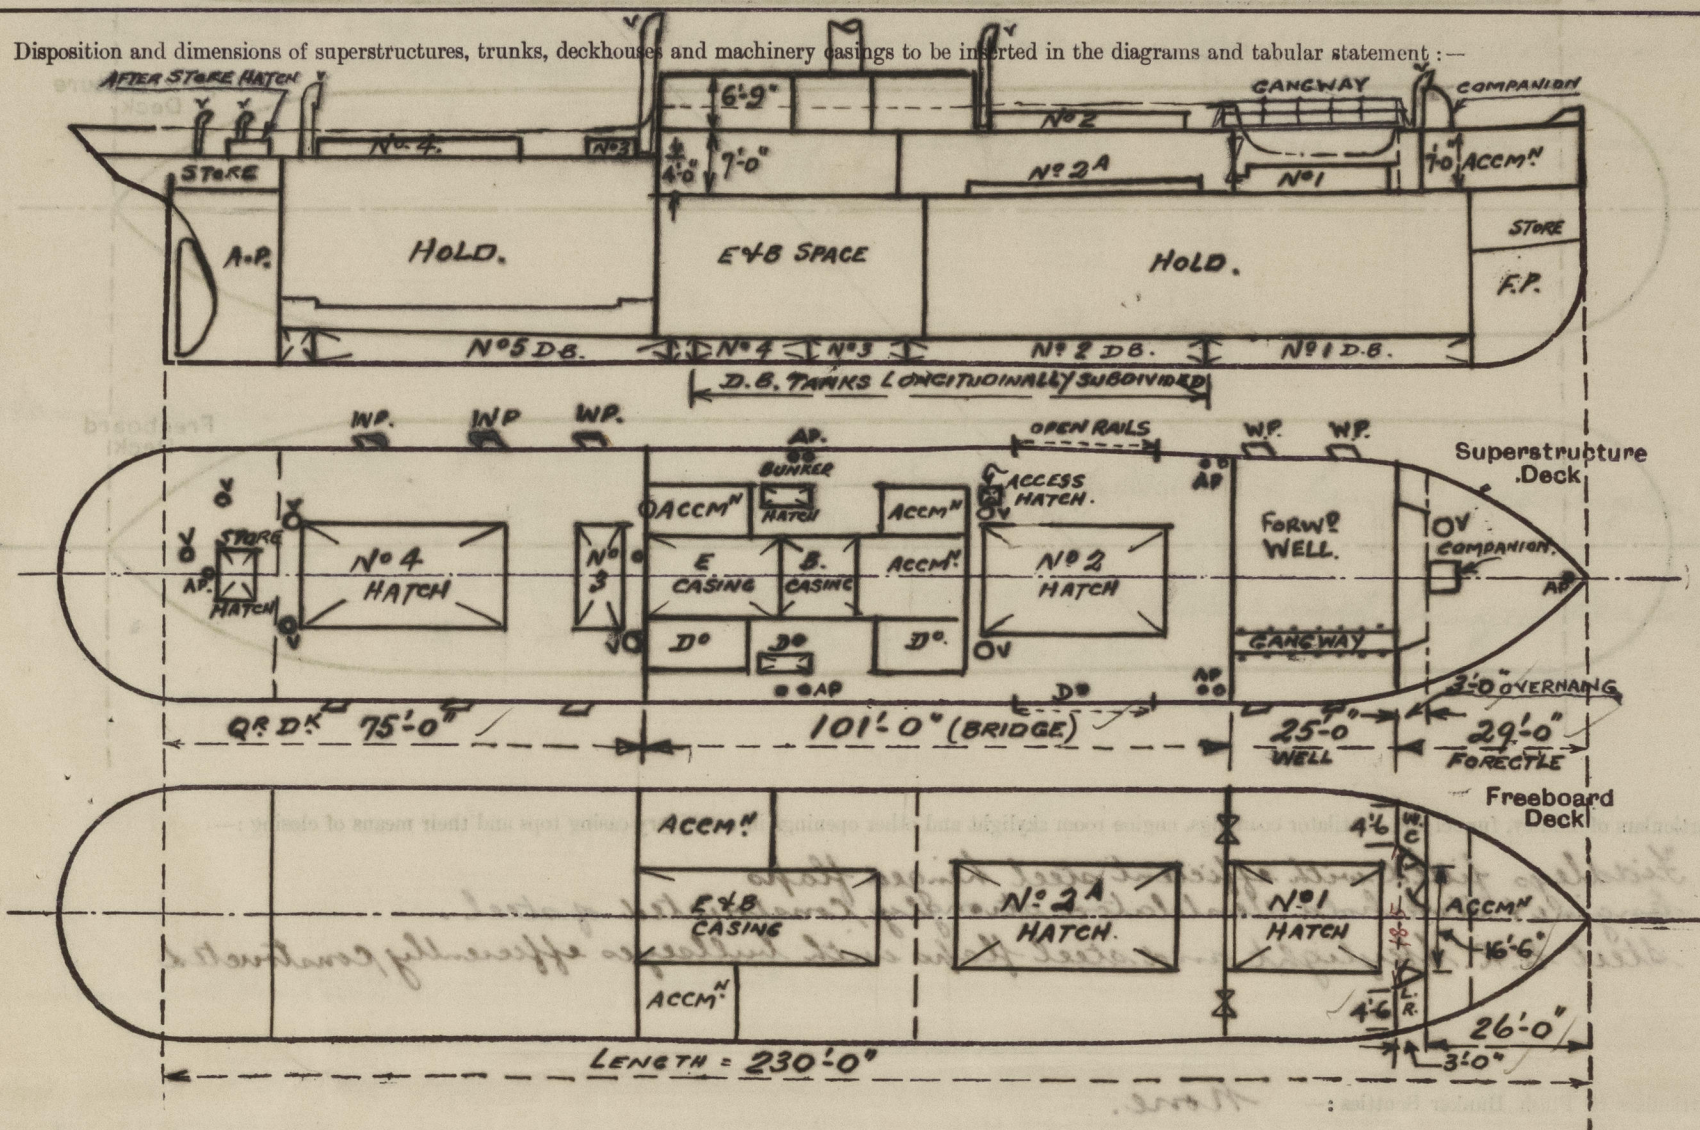 Disposition and dimensions of superstructures, trunks, deckhouses and machinery casings to be inserted in the diagrams and tabular statement :—
AFTER STORE HATCH
V
V
V
V
V
V
GANGWAY
COMPANION
6'-9"
No 4.
No 3
No 2
STORE
4'-0"
7'-0"
No 2A
No 1
7'-0"
ACCMN
A.P.
HOLD.
E&B SPACE
HOLD.
STORE
F.P.
No 5 D.B.
No 4
No 3
No 2 D.B.
No 1 D.B.
D.B. TANKS LONGITUDINALLY SUBDIVIDED
WP.
WP
WP.
AP.
OPEN RAILS
W.P.
W.P.
Superstructure
Deck
BUNKER
HATCH
ACCESS
HATCH.
AP
V
V
V
ACCMN
ACCMN
V
STORE
HATCH
AP.
No 4
HATCH
No
3
E
CASING
B.
CASING
ACCMN
No 2
HATCH
FORWD
WELL.
V
COMPANION.
AP
V
V
Do
Do
Do.
V
GANGWAY
AP
AP
Do
3'-0" OVERHANG
QR. DK 75'-0"
101'-0" (BRIDGE)
25'-0"
WELL
29'-0"
FORECTLE
Freeboard
Deck
ACCMN
4'6
W.
C
E&B
CASING
No 2A
HATCH.
No 1
HATCH
ACCMN
16'-6"
ACCMN
4'6
L.
R.
26'-0"
3'-0"
LENGTH = 230'-0"